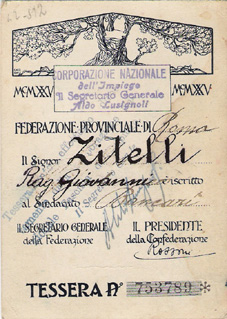 MCMXXV MCMXXV
CORPORAZIONE NAZIONALE
dell'Impiego
Il Segretario Generale
Aldo Lusignoli
FEDERAZIONE PROVINCIALE DI Roma
Il Signor Zitelli
Rag. Giovanni è iscritto
al Sindacato Bancari
IL SEGRETARIO GENERALE IL PRESIDENTE
della Federazione della Confederazione
Rossoni
TESSERA N° 753789 *